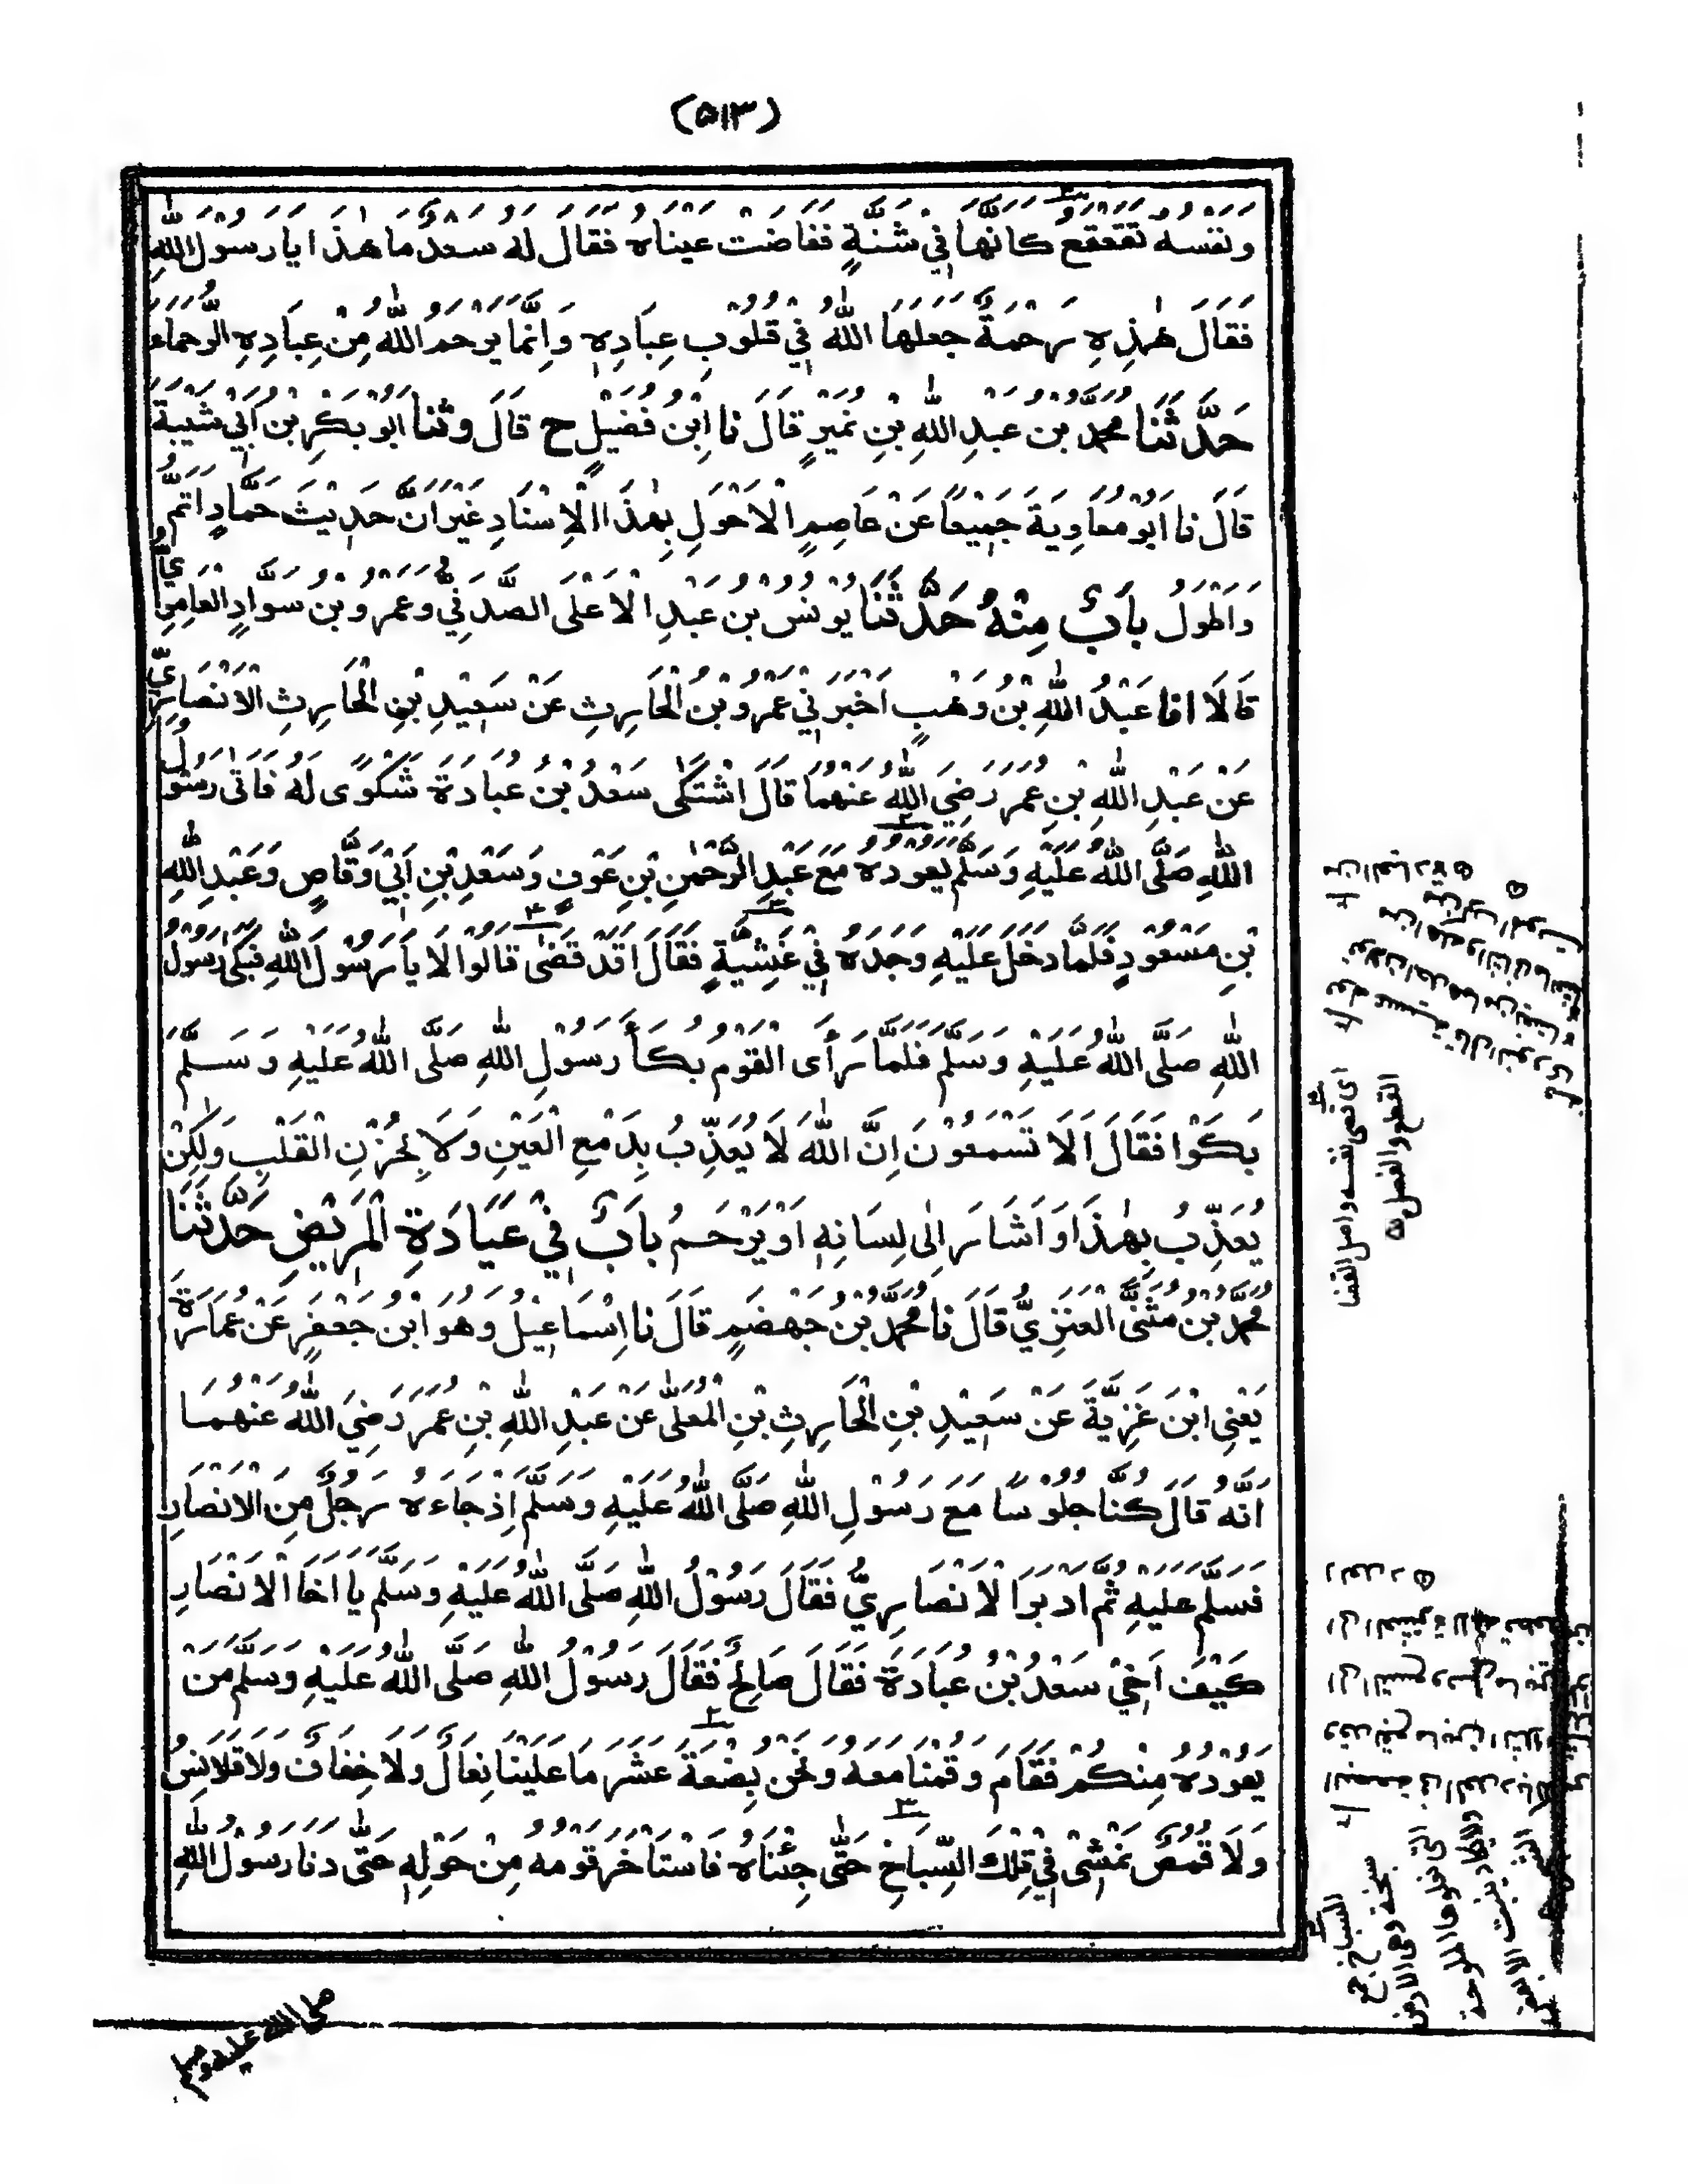 (۵۱۳)
وَنَفْسُهُ تَقَعْقَعُ كَاَنَّهَا فِي شَنَّةٍ فَفَاضَتْ عَيْنَاهُ فَقَالَ لَهُ سَعْدٌ مَا هٰذَا يَا رَسُوْلَ اللّٰهِ
فَقَالَ هٰذِهِ رَحْمَةٌ جَعَلَهَا اللّٰهُ فِي قُلُوْبِ عِبَادِهِ وَاِنَّمَا يَرْحَمُ اللّٰهُ مِنْ عِبَادِهِ الرُّحَمَاءَ
حَدَّثَنَا مُحَمَّدُ بْنُ عَبْدِ اللّٰهِ بْنِ نُمَيْرٍ قَالَ نَا ابْنُ فُضَيْلٍ ح قَالَ وَثَنَا اَبُوْ بَكْرِ بْنُ اَبِيْ شَيْبَةَ
قَالَ نَا اَبُوْ مُعَاوِيَةَ جَمِيْعًا عَنْ عَاصِمٍ الْاَحْوَلِ بِهٰذَا الْاِسْنَادِ غَيْرَ اَنَّ حَدِيْثَ حَمَّادٍ اَتَمُّ
وَاَطْوَلُ بَابٌ مِنْهُ حَدَّثَنَا يُوْنُسُ بْنُ عَبْدِ الْاَعْلَى الصَّدَفِيُّ وَعَمْرُو بْنُ سَوَّادٍ الْعَامِرِيُّ
قَالَا اَنَا عَبْدُ اللّٰهِ بْنُ وَهْبٍ اَخْبَرَنِيْ عَمْرُو بْنُ الْحَارِثِ عَنْ سَعِيْدِ بْنِ الْحَارِثِ الْاَنْصَارِيِّ
عَنْ عَبْدِ اللّٰهِ بْنِ عُمَرَ رَضِيَ اللّٰهُ عَنْهُمَا قَالَ اشْتَكٰى سَعْدُ بْنُ عُبَادَةَ شَكْوًى لَهُ فَاَتٰى رَسُوْلُ
اللّٰهِ صَلَّى اللّٰهُ عَلَيْهِ وَسَلَّمَ يَعُوْدُهُ مَعَ عَبْدِ الرَّحْمٰنِ بْنِ عَوْفٍ وَسَعْدِ بْنِ اَبِيْ وَقَّاصٍ وَعَبْدِ اللّٰهِ
بْنِ مَسْعُوْدٍ فَلَمَّا دَخَلَ عَلَيْهِ وَجَدَهُ فِيْ غَشِيَّةٍ فَقَالَ اَقَدْ قَضٰى قَالُوْا لَا يَا رَسُوْلَ اللّٰهِ فَبَكٰى رَسُوْلُ
اللّٰهِ صَلَّى اللّٰهُ عَلَيْهِ وَسَلَّمَ فَلَمَّا رَأَى الْقَوْمُ بُكَاَ رَسُوْلِ اللّٰهِ صَلَّى اللّٰهُ عَلَيْهِ وَسَلَّمَ
بَكَوْا فَقَالَ اَلَا تَسْمَعُوْنَ اِنَّ اللّٰهَ لَا يُعَذِّبُ بِدَمْعِ الْعَيْنِ وَلَا بِحُزْنِ الْقَلْبِ وَلٰكِنْ
يُعَذِّبُ بِهٰذَا وَاَشَارَ اِلٰى لِسَانِهِ اَوْ يَرْحَمُ بَابٌ فِيْ عِيَادَةِ الْمَرِيْضِ حَدَّثَنَا
مُحَمَّدُ بْنُ مُثَنَّى الْعَنَزِيُّ قَالَ نَا مُحَمَّدُ بْنُ جَهْضَمٍ قَالَ نَا اِسْمَاعِيْلُ وَهُوَ ابْنُ جَعْفَرٍ عَنْ عُمَارَةَ
يَعْنِي ابْنَ غَزِيَّةَ عَنْ سَعِيْدِ بْنِ الْحَارِثِ بْنِ الْمُعَلّٰى عَنْ عَبْدِ اللّٰهِ بْنِ عُمَرَ رَضِيَ اللّٰهُ عَنْهُمَا
اَنَّهُ قَالَ كُنَّا جُلُوْسًا مَعَ رَسُوْلِ اللّٰهِ صَلَّى اللّٰهُ عَلَيْهِ وَسَلَّمَ اِذْ جَاءَهُ رَجُلٌ مِنَ الْاَنْصَارِ
فَسَلَّمَ عَلَيْهِ ثُمَّ اَدْبَرَ الْاَنْصَارِيُّ فَقَالَ رَسُوْلُ اللّٰهِ صَلَّى اللّٰهُ عَلَيْهِ وَسَلَّمَ يَا اَخَا الْاَنْصَارِ
كَيْفَ اَخِيْ سَعْدُ بْنُ عُبَادَةَ فَقَالَ صَالِحٌ فَقَالَ رَسُوْلُ اللّٰهِ صَلَّى اللّٰهُ عَلَيْهِ وَسَلَّمَ مَنْ
يَعُوْدُهُ مِنْكُمْ فَقَامَ وَقُمْنَا مَعَهُ وَنَحْنُ بِضْعَةَ عَشَرَ مَا عَلَيْنَا نِعَالٌ وَلَا خِفَافٌ وَلَا قَلَانِسُ
وَلَا قُمُصٌ نَمْشِيْ فِيْ تِلْكَ السِّبَاخِ حَتّٰى جِئْنَاهُ فَاسْتَاْخَرَ قَوْمُهُ مِنْ حَوْلِهِ حَتّٰى دَنَا رَسُوْلُ اللّٰهِ
صلى الله عليه وسلم
اى قضى نفسه واصل القضا
القطع والفصل
السباخ جمع
سبخة وهى الارض
التى تعلوها الملوحة